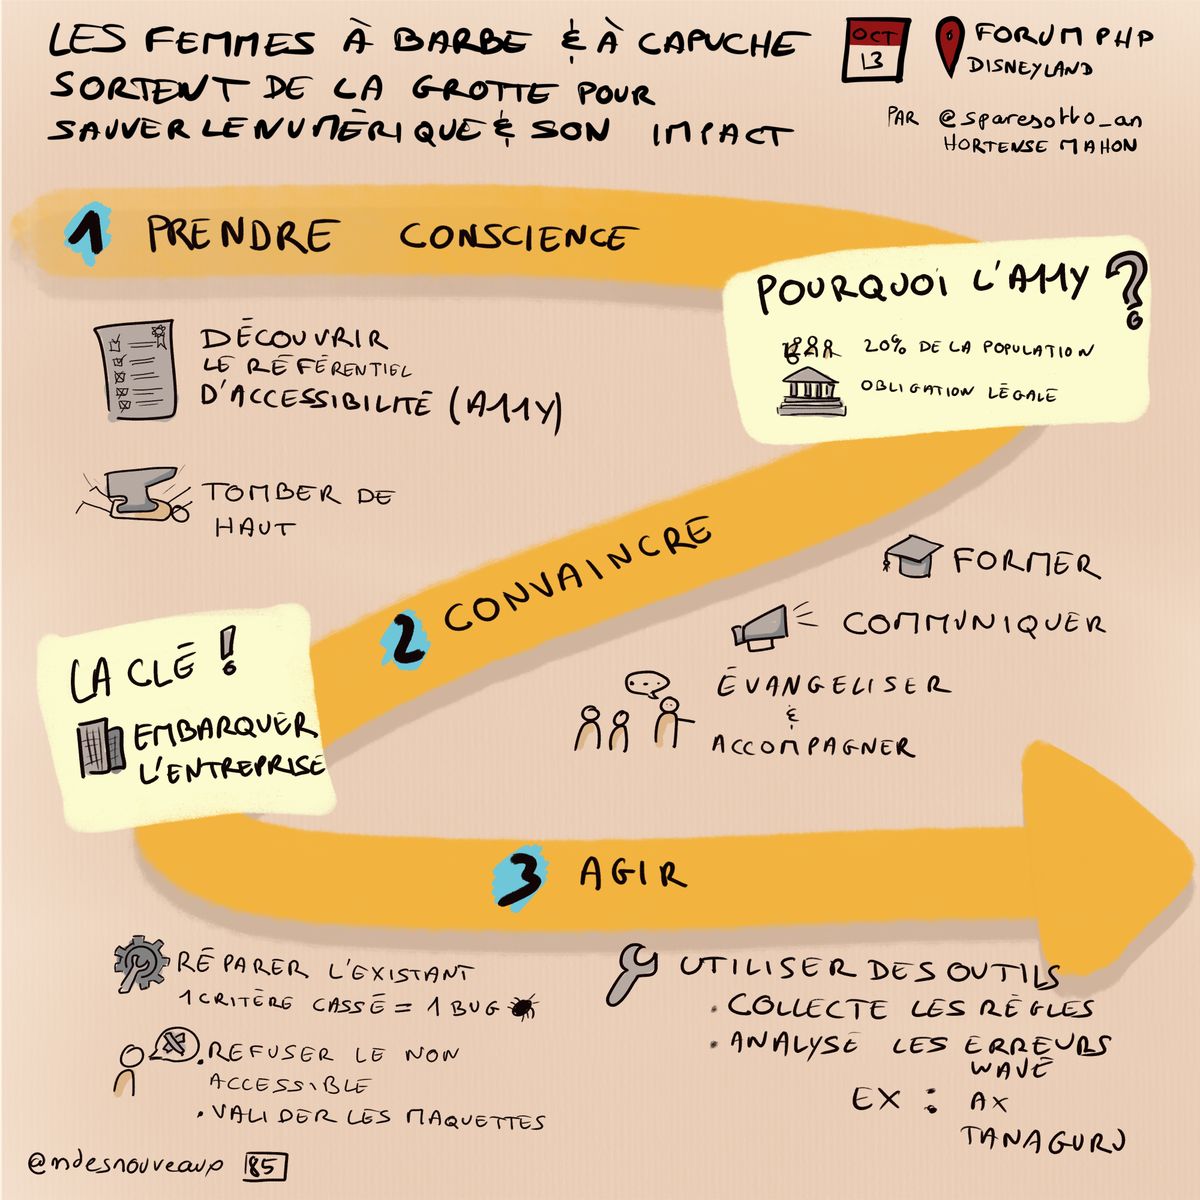 LES FEMMES À BARBE & À CAPUCHE
SORTENT DE LA GROTTE POUR
SAUVER LE NUMÉRIQUE & SON IMPACT
OCT
13
FORUM PHP
DISNEYLAND
PAR @sparesotto_an
HORTENSE MAHON
1 PRENDRE CONSCIENCE
POURQUOI L'A11Y ?
20% DE LA POPULATION
OBLIGATION LÉGALE
DÉCOUVRIR
LE RÉFÉRENTIEL
D'ACCESSIBILITÉ (A11Y)
TOMBER DE
HAUT
2 CONVAINCRE
FORMER
COMMUNIQUER
ÉVANGELISER
&
ACCOMPAGNER
LA CLÉ !
EMBARQUER
L'ENTREPRISE
3 AGIR
RÉPARER L'EXISTANT
1 CRITÈRE CASSÉ = 1 BUG
. REFUSER LE NON
ACCESSIBLE
. VALIDER LES MAQUETTES
UTILISER DES OUTILS
. COLLECTE LES RÈGLES
. ANALYSE LES ERREURS
WAVE
EX : AX
TANAGURU
@mdesnouveaux 85